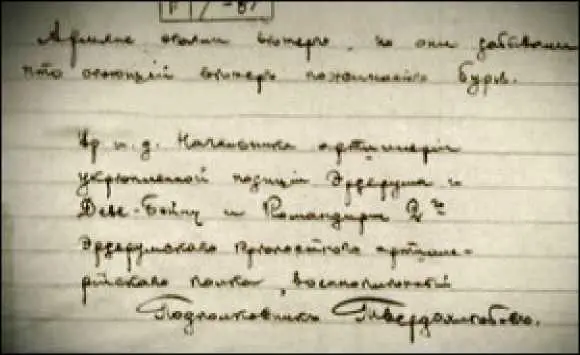 Армяне сѣяли вѣтеръ, но они забывали
что сѣющій вѣтеръ пожинаетъ бурю.
Вр. и. д. Начальника артиллеріи
укрѣпленной позиціи Эрзерума и
Деве-Бойну и Командиръ 2го
Эрзерумскаго крѣпостного артилле-
рійскаго полка, военноплѣнный
Подполковникъ Твердохлебовъ.